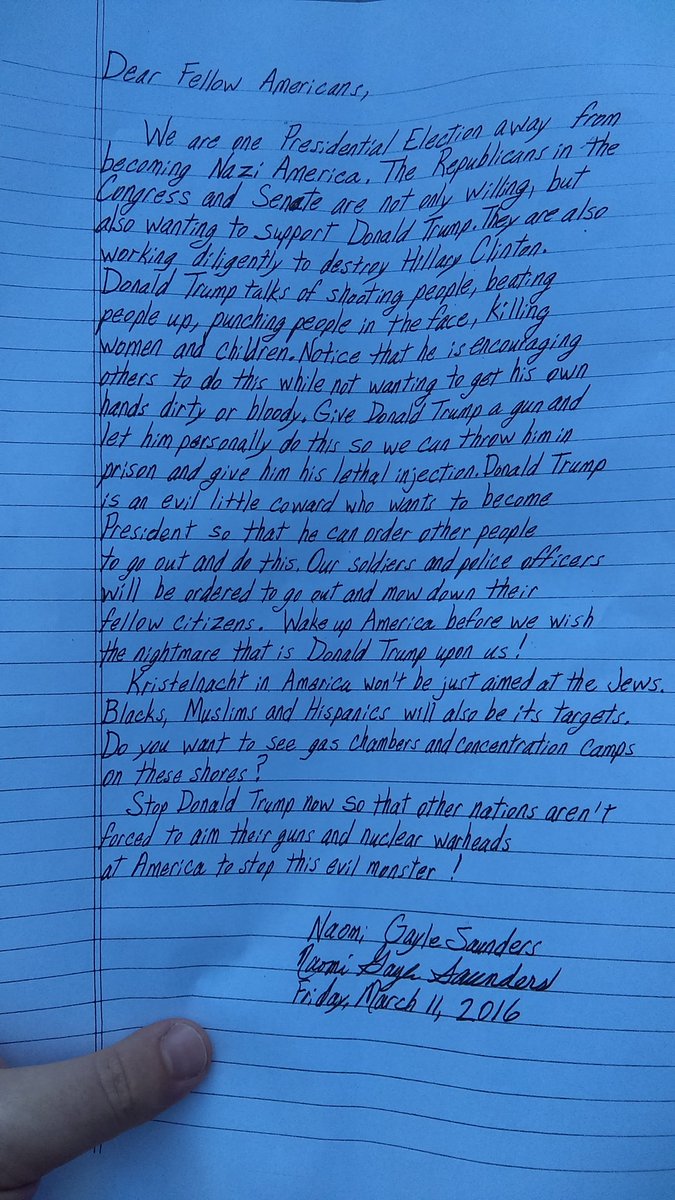 Dear Fellow Americans,
We are one Presidential Election away from
becoming Nazi America. The Republicans in the
Congress and Senate are not only willing, but
also wanting to support Donald Trump. They are also
working diligently to destroy Hillary Clinton.
Donald Trump talks of shooting people, beating
people up, punching people in the face, killing
women and children. Notice that he is encouraging
others to do this while not wanting to get his own
hands dirty or bloody. Give Donald Trump a gun and
let him personally do this so we can throw him in
prison and give him his lethal injection. Donald Trump
is an evil little coward who wants to become
President so that he can order other people
to go out and do this. Our soldiers and police officers
will be ordered to go out and mow down their
fellow citizens. Wake up America before we wish
the nightmare that is Donald Trump upon us!
Kristelnacht in America won't be just aimed at the Jews.
Blacks, Muslims and Hispanics will also be its targets.
Do you want to see gas chambers and concentration camps
on these shores?
Stop Donald Trump now so that other nations aren't
forced to aim their guns and nuclear warheads
at America to stop this evil monster!
Naomi Gayle Saunders
Naomi Gayle Saunders
Friday, March 11, 2016